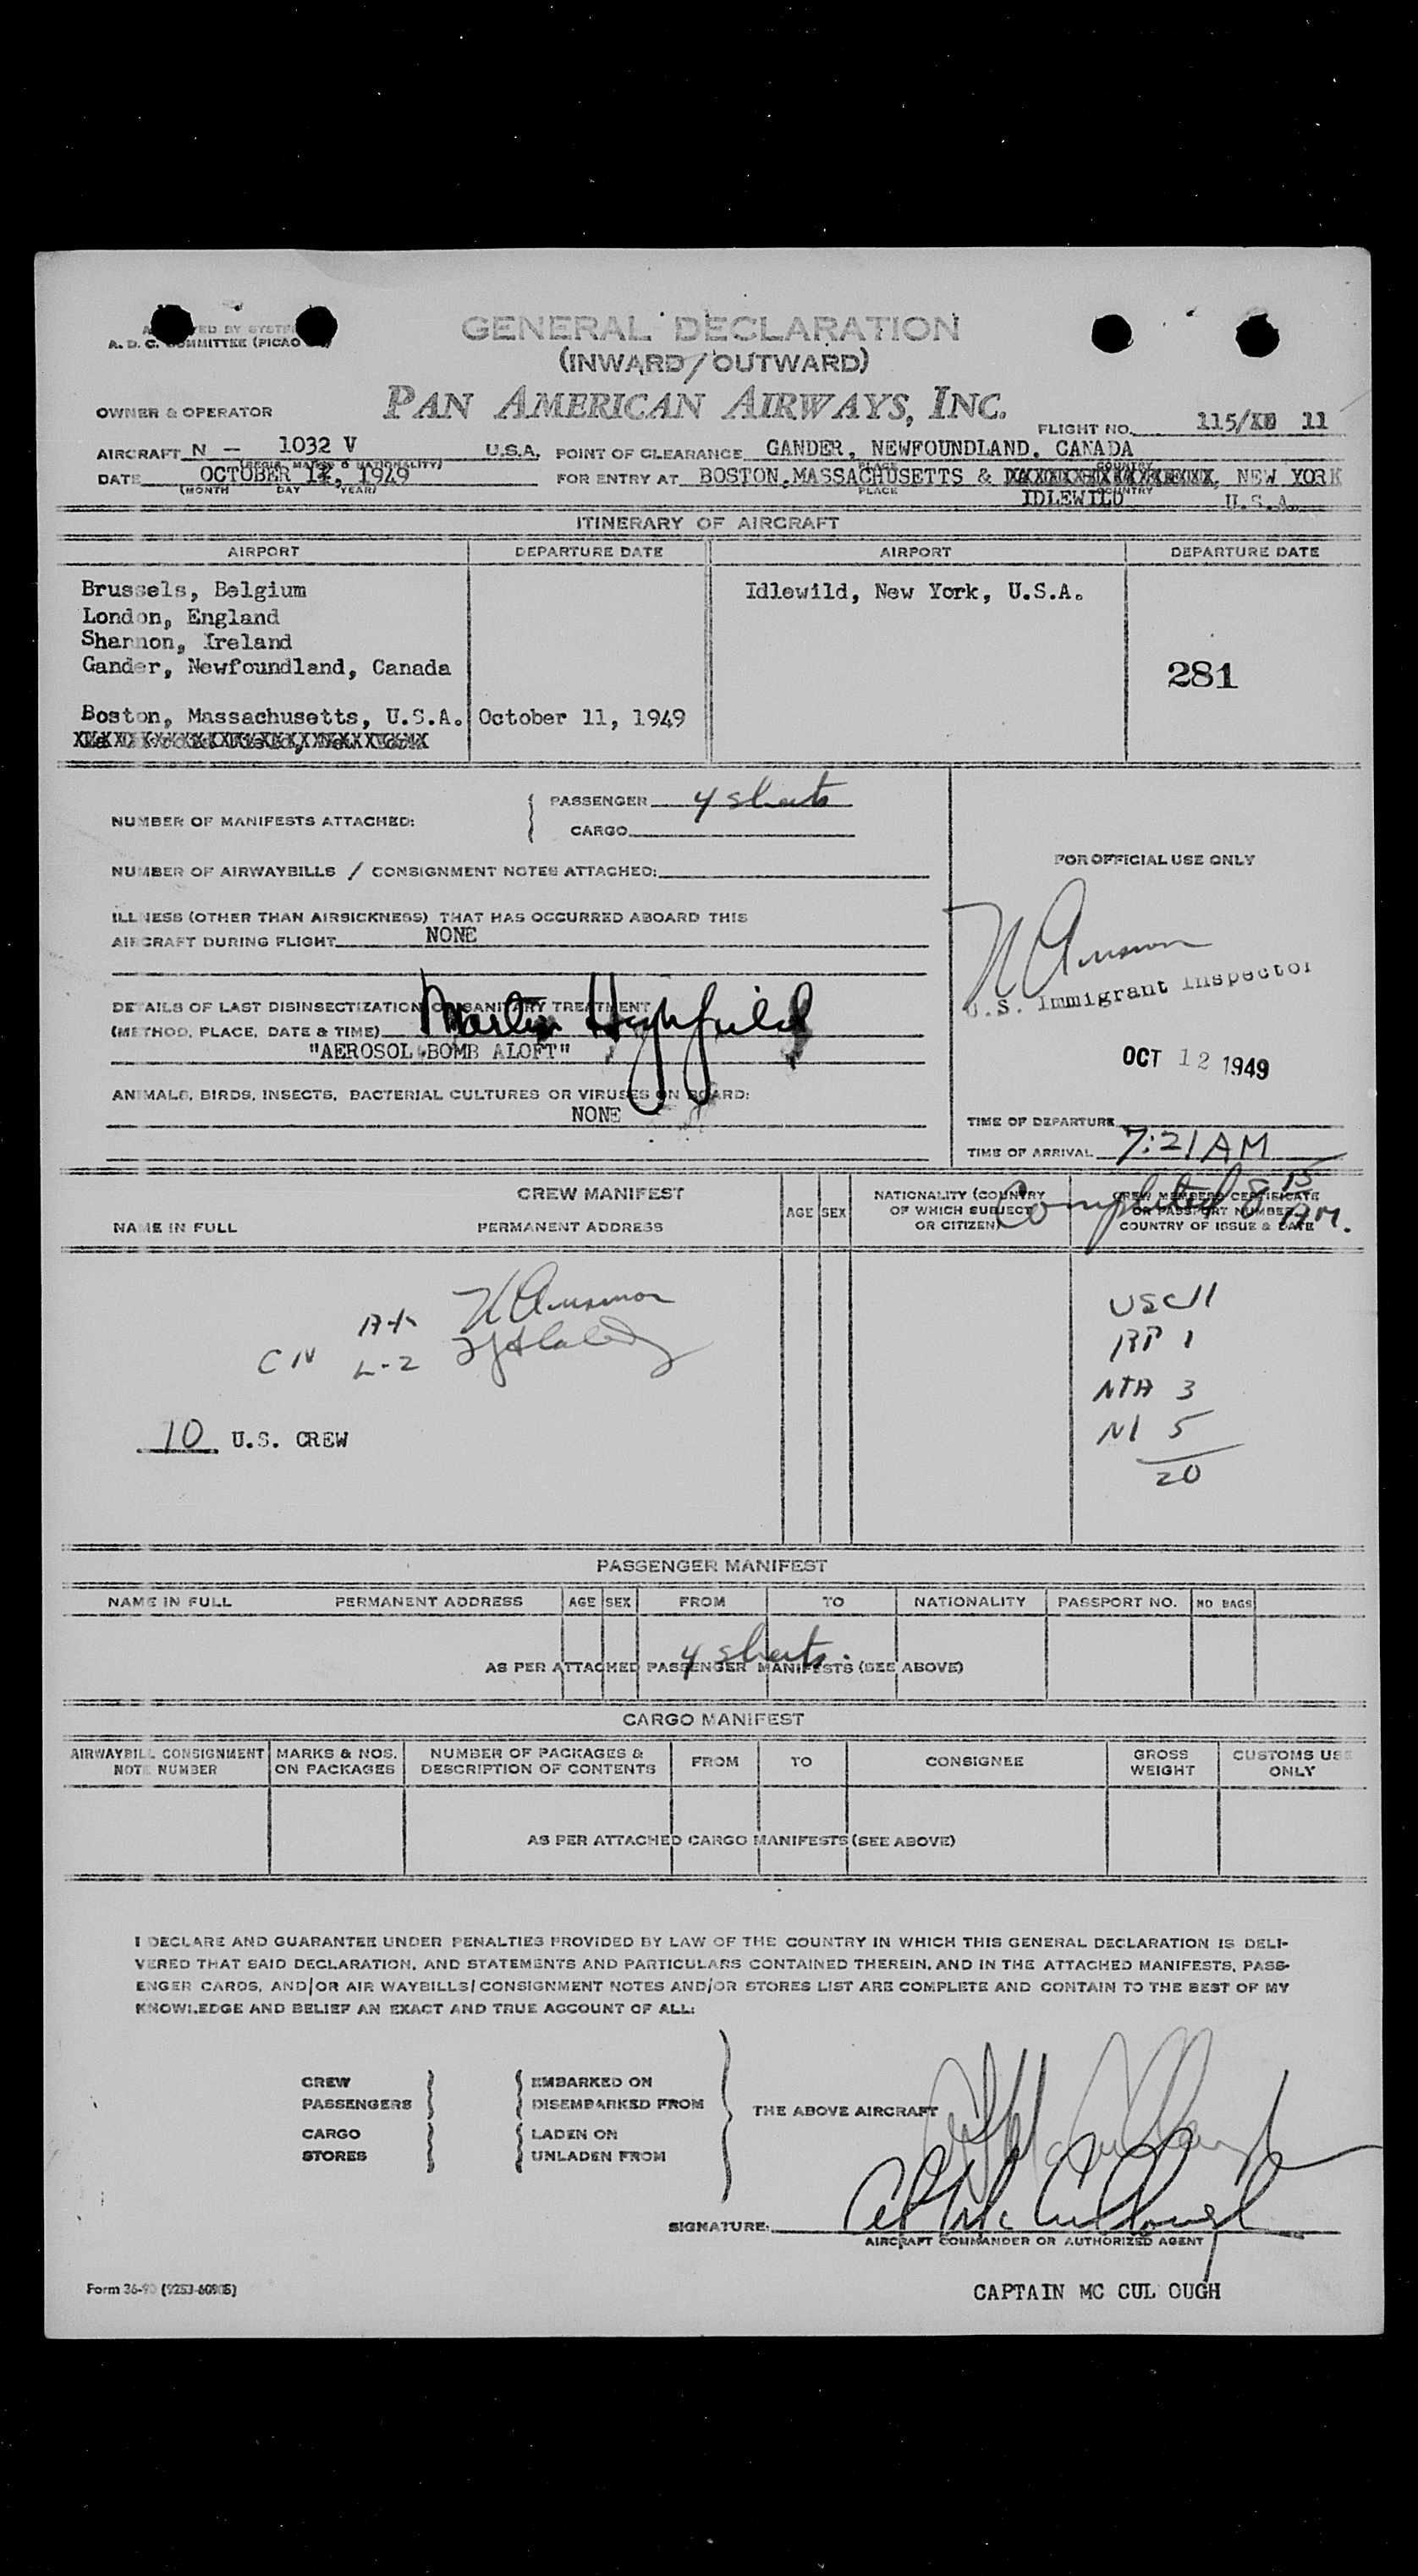 A. D. C. COMMITTEE (PICAO
GENERAL DECLARATION
(INWARD/OUTWARD)
OWNER & OPERATOR PAN AMERICAN AIRWAYS, INC.
FLIGHT NO. 115/ 11
AIRCRAFT N - 1032 V U.S.A. POINT OF CLEARANCE GANDER, NEWFOUNDLAND, CANADA
DATE OCTOBER 1 , 1949 FOR ENTRY AT BOSTON, MASSACHUSETTS & NEW YORK
(MONTH DAY YEAR) PLACE COUNTRY
IDLEWILD U.S.A.
ITINERARY OF AIRCRAFT
AIRPORT DEPARTURE DATE AIRPORT DEPARTURE DATE
Brussels, Belgium Idlewild, New York, U.S.A.
London, England
Shannon, Ireland
Gander, Newfoundland, Canada 281
Boston, Massachusetts, U.S.A. October 11, 1949
NUMBER OF MANIFESTS ATTACHED:
PASSENGER 4 sheets
CARGO
NUMBER OF AIRWAYBILLS / CONSIGNMENT NOTES ATTACHED:
ILLNESS (OTHER THAN AIRSICKNESS) THAT HAS OCCURRED ABOARD THIS
AIRCRAFT DURING FLIGHT NONE
DETAILS OF LAST DISINSECTIZATION OR SANITARY TREATMENT
(METHOD, PLACE, DATE & TIME) Martin Highfield
"AEROSOL BOMB ALOFT"
ANIMALS, BIRDS, INSECTS, BACTERIAL CULTURES OR VIRUSES ON BOARD:
NONE
FOR OFFICIAL USE ONLY
U.S. Immigrant Inspector
OCT 12 1949
TIME OF DEPARTURE
TIME OF ARRIVAL 7:21 AM
Completed 8 15 AM.
CREW MANIFEST
NAME IN FULL PERMANENT ADDRESS AGE SEX NATIONALITY (COUNTRY OF WHICH SUBJECT OR CITIZEN) CREW MEMBERS CERTIFICATE OR PASSPORT NUMBER, COUNTRY OF ISSUE & DATE
USC 11
RP 1
CN L-2
NTA 3
NI 5
10 U.S. CREW
20
PASSENGER MANIFEST
NAME IN FULL PERMANENT ADDRESS AGE SEX FROM TO NATIONALITY PASSPORT NO. NO BAGS
4 sheets.
AS PER ATTACHED PASSENGER MANIFESTS (SEE ABOVE)
CARGO MANIFEST
AIRWAYBILL CONSIGNMENT NOTE NUMBER MARKS & NOS. ON PACKAGES NUMBER OF PACKAGES & DESCRIPTION OF CONTENTS FROM TO CONSIGNEE GROSS WEIGHT CUSTOMS USE ONLY
AS PER ATTACHED CARGO MANIFESTS (SEE ABOVE)
I DECLARE AND GUARANTEE UNDER PENALTIES PROVIDED BY LAW OF THE COUNTRY IN WHICH THIS GENERAL DECLARATION IS DELI-
VERED THAT SAID DECLARATION, AND STATEMENTS AND PARTICULARS CONTAINED THEREIN, AND IN THE ATTACHED MANIFESTS, PASS-
ENGER CARDS, AND/OR AIR WAYBILLS/CONSIGNMENT NOTES AND/OR STORES LIST ARE COMPLETE AND CONTAIN TO THE BEST OF MY
KNOWLEDGE AND BELIEF AN EXACT AND TRUE ACCOUNT OF ALL:
CREW EMBARKED ON
PASSENGERS DISEMBARKED FROM
THE ABOVE AIRCRAFT
CARGO LADEN ON
STORES UNLADEN FROM
SIGNATURE:
AIRCRAFT COMMANDER OR AUTHORIZED AGENT
Form 36-
CAPTAIN MC CUL OUGH